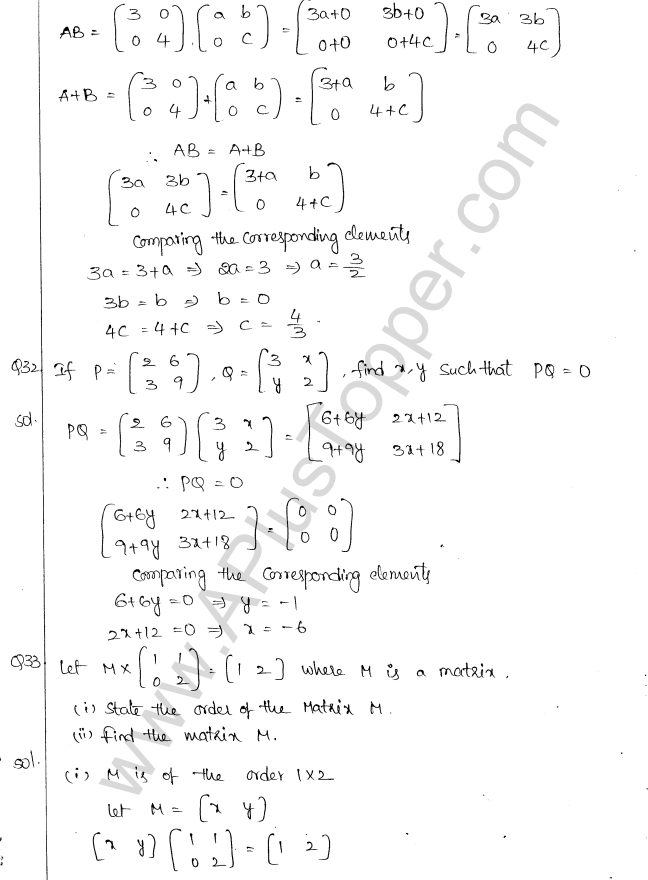 AB = [3 0; 0 4] . [a b; 0 c] = [3a+0 3b+0; 0+0 0+4c] = [3a 3b; 0 4c]
A+B = [3 0; 0 4] + [a b; 0 c] = [3+a b; 0 4+c]
∴ AB = A+B
[3a 3b; 0 4c] = [3+a b; 0 4+c]
Comparing the corresponding elements
3a = 3+a ⇒ 2a = 3 ⇒ a = 3/2
3b = b ⇒ b = 0
4c = 4+c ⇒ c = 4/3 .
Q32 If P = [2 6; 3 9] , Q = [3 x; y 2] , find x, y such that PQ = 0
sol. PQ = [2 6; 3 9] [3 x; y 2] = [6+6y 2x+12; 9+9y 3x+18]
∴ PQ = 0
[6+6y 2x+12; 9+9y 3x+18] = [0 0; 0 0]
Comparing the corresponding elements
6+6y = 0 ⇒ y = -1
2x+12 = 0 ⇒ x = -6
Q33 Let M × [1 1; 0 2] = [1 2] where M is a matrix.
(i) State the order of the Matrix M.
(ii) find the matrix M.
sol. (i) M is of the order 1×2
let M = [x y]
[x y] [1 1; 0 2] = [1 2]
www.APlusTopper.com